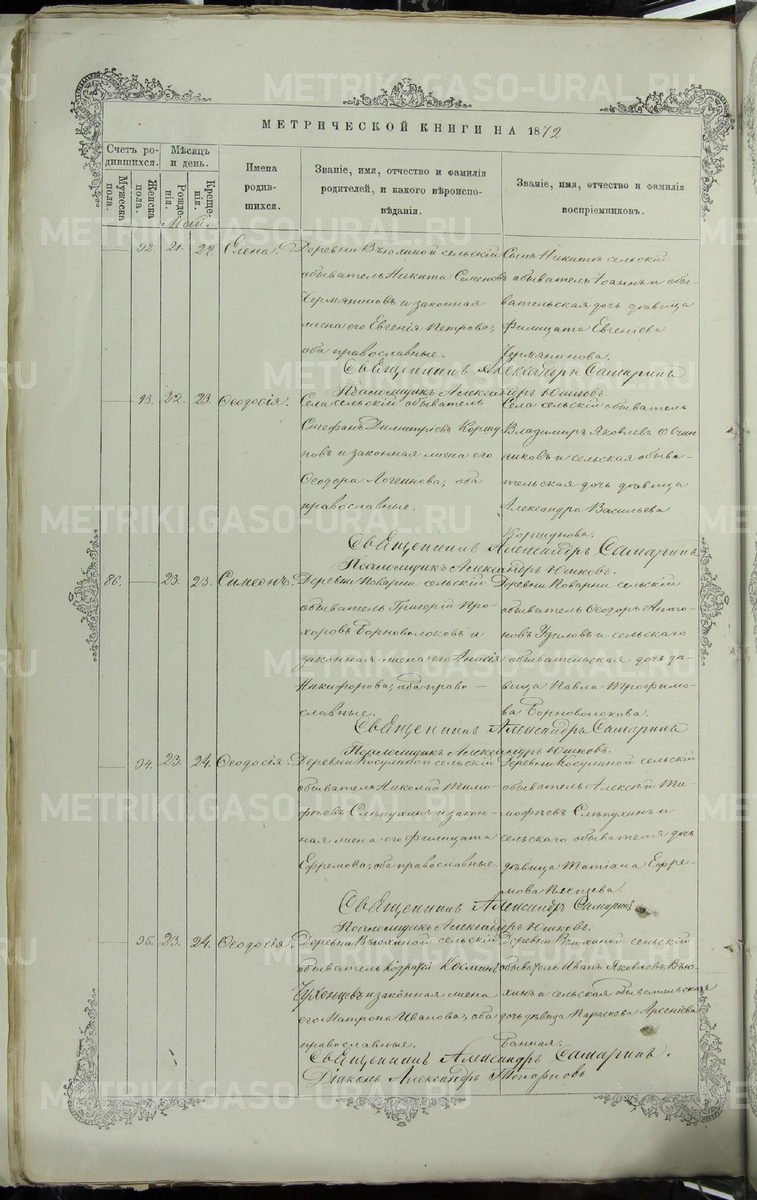 МЕТРИЧЕСКОЙ КНИГИ НА 1872
Счетъ ро-
дившихся.
Мужеска
пола.
Женска
пола.
Мѣсяцъ
и день.
Рожде-
нія.
Креще-
нія.
Имена
родив-
шихся.
Званіе, имя, отчество и фамилія
родителей, и какого вѣроиспо-
вѣданія.
Званіе, имя, отчество и фамилія
воспріемниковъ.
Май.
92. 21. 22. Елена.
Деревни Вьюхиной сельскій
обыватель Никита Семеновъ
Чермяниновъ и законная
жена его Евгенія Петрова;
оба православные.
Сынъ Никиты сельскій
обыватель Іоаннъ и обы-
вательская дочь дѣвица
Филицата Евгеніева
Чермянинова.
Священникъ Александръ Самаринъ
Псаломщикъ Александръ Юшковъ.
93. 22. 23. Ѳеодосія.
Села сельскій обыватель
Стефанъ Димитріевъ Коршу
новъ и законная жена его
Ѳеодора Логгинова; оба
православные.
Села сельскій обыватель
Владиміръ Яковлевъ Овчин
никовъ и сельская обыва-
тельская дочь дѣвица
Александра Васильева
Коршунова.
Священникъ Александръ Самаринъ
Псаломщикъ Александръ Юшковъ.
86. 23. 23. Симеонъ.
Деревни Поварни сельскій
обыватель Григорій Про-
хоровъ Черноволоковъ и
законная жена его Анисія
Никифорова; оба право-
славные.
Деревни Поварни сельскій
обыватель Ѳеодоръ Анто-
новъ и сельскаго
обывательская дочь дѣ-
вица Павла Трофимо-
ва Черноволокова.
Священникъ Александръ Самаринъ
Псаломщикъ Александръ Юшковъ.
94. 23. 24. Ѳеодосія.
Деревни Косулиной сельскій
обыватель Николай Тимо-
фѣевъ Слѣпухинъ и закон-
ная жена его Филицата
Ефремова; оба православные.
Деревни Косулиной сельскій
обыватель Алексѣй Ти-
мофѣевъ Слѣпухинъ и
сельскаго обывателя дочь
дѣвица Татіана Ефре-
мова
Священникъ Александръ Самаринъ
Псаломщикъ Александръ Юшковъ.
95. 23. 24. Ѳеодосія.
Деревни Вьюхиной сельскій
обыватель Козьминъ
и законная жена
его Матрона Иванова; оба
православные.
Деревни Вьюхиной сельскій
обыватель Иванъ Яковлевъ Вью
хинъ и сельская обывательская
дочь дѣвица Параскева Арсеніева
Банная.
Священникъ Александръ Самаринъ.
Діаконъ Александръ Топорковъ
METRIKI.GASO-URAL.RU